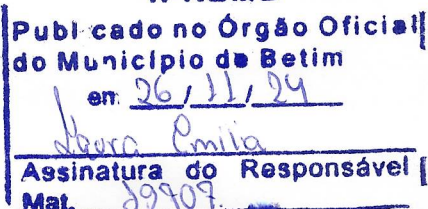 Publicado no Órgão Oficial
do Município de Betim
em 26/11/24
Laura Emilia
Assinatura do Responsável
Mat.